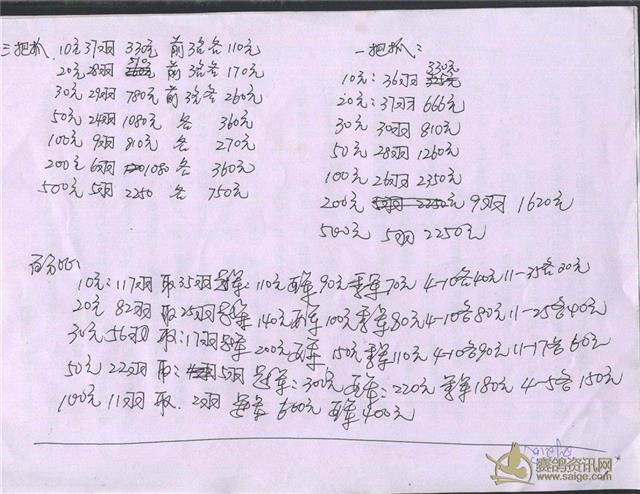 三把抓 10元37羽 330元 前3名各110元
20元28羽 510元 前3名各170元
30元29羽 780元 前3名各260元
50元24羽 1080元 各 360元
100元 9羽 810元 各 270元
200元 6羽 1080 各 360元
500元 5羽 2250 各 750元
一把抓:
10元: 36羽 330元
20元: 37羽 666元
30元 30羽 810元
50元 28羽 1260元
100元 26羽 2350元
200元 5羽 2250元 9羽 1620元
500元 5羽 2250元
百分比:
10元: 117羽 取35羽 冠军: 110元 亚军 90元 季军 70元 4-10各40元 11-35各20元
20元 82羽 取25羽 冠军 140元 亚军 100元 季军 80元 4-10各80元 11-25各40元
30元 56羽 取: 17羽 冠军 200元 亚军 150元 季军 110元 4-10各90元 11-17各60元
50元 22羽 取: 5羽 冠军: 300元 亚军: 220元 季军 180元 4-5各150元
100元 11羽 取. 2羽 冠军 600元 亚军 400元
赛鸽资讯网
www.saige.com